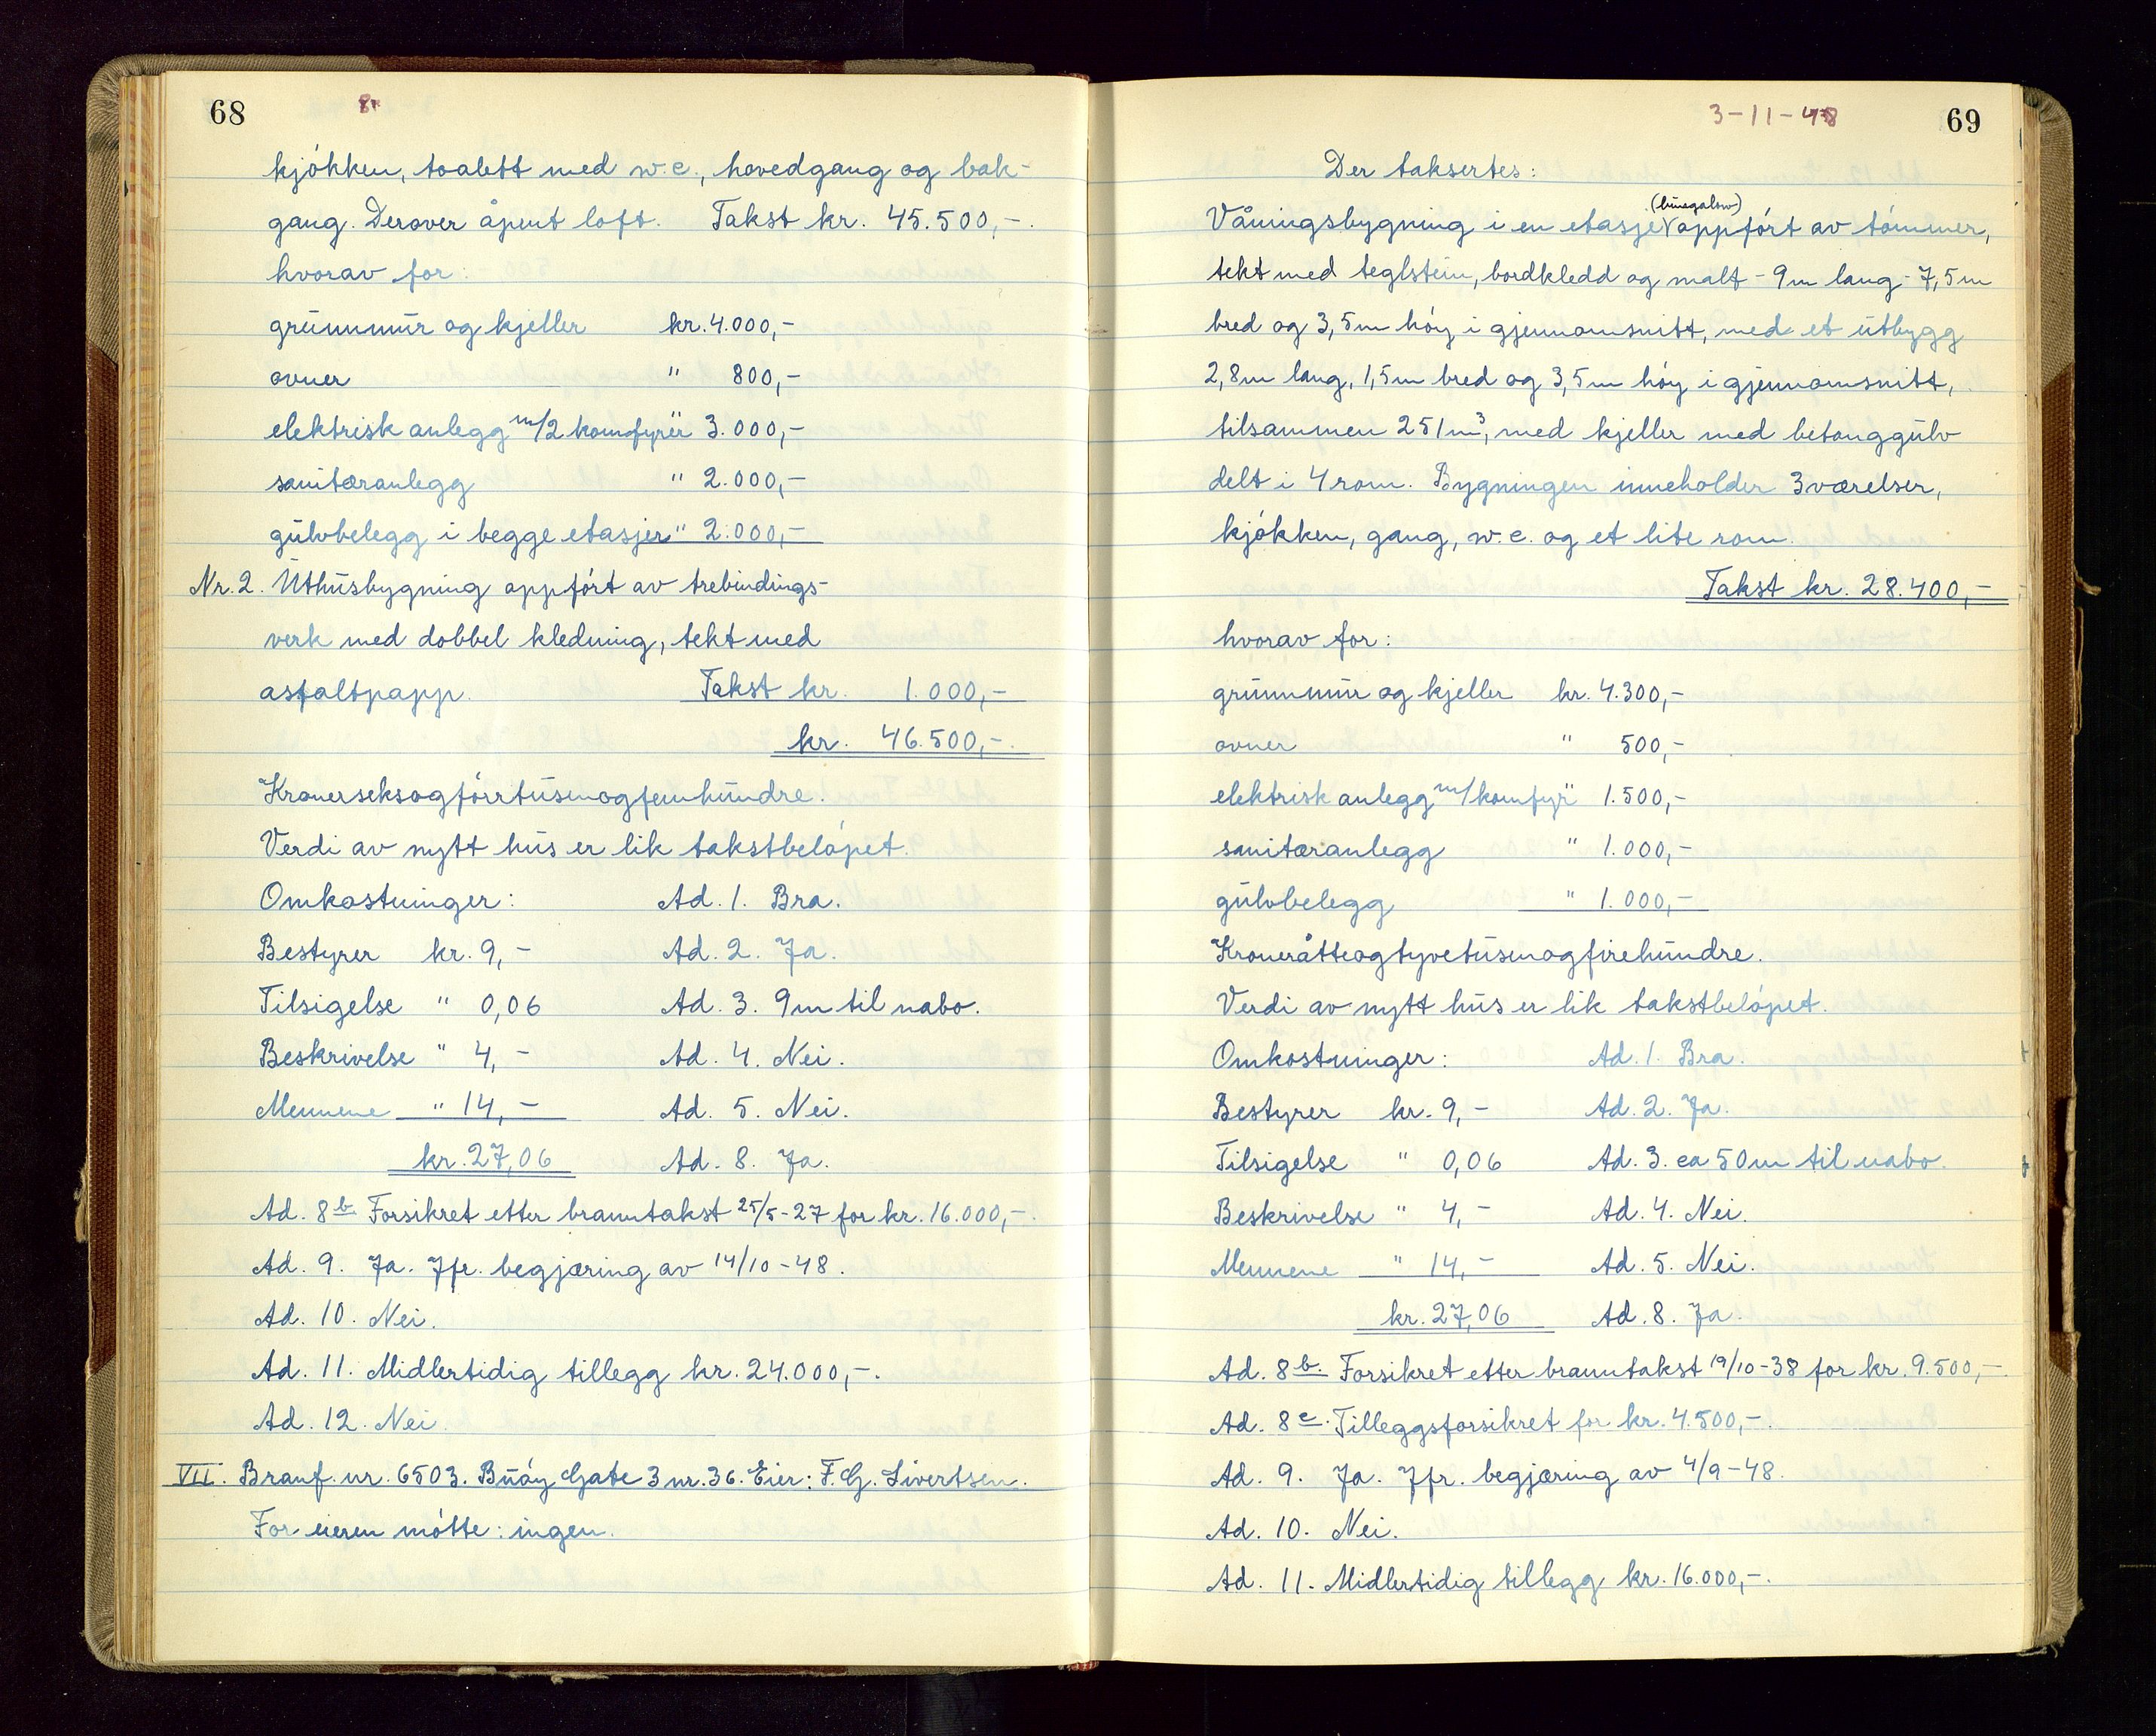 68
8
kjøkken, toalett med w.c., hovedgang og bak-
gang. Derover åpent loft. Takst kr. 45.500,-.
hvorav for:
grunnmur og kjeller kr. 4.000,-
ovner " 800,-
elektrisk anlegg m/2 komfyrer " 3.000,-
sanitæranlegg " 2.000,-
gulvbelegg i begge etasjer " 2.000,-
Nr. 2. Uthusbygning oppført av trebindings-
verk med dobbel kledning, tekt med
asfaltpapp. Takst kr. 1.000,-
kr. 46.500,-.
Kronerseksogførrtusenogfemhundre.
Verdi av nytt hus er lik takstbeløpet.
Omkostninger: Ad. 1. Bra.
Bestyrer kr. 9,- Ad. 2. Ja.
Tilsigelse " 0,06 Ad. 3. 9m til nabo.
Beskrivelse " 4,- Ad. 4. Nei.
Mennene " 14,- Ad. 5. Nei.
kr. 27,06 Ad. 8. Ja.
Ad. 8b Forsikret etter branntakst 25/5-27 for kr. 16.000,-.
Ad. 9. Ja. Jfr. begjæring av 14/10-48.
Ad. 10. Nei.
Ad. 11. Midlertidig tillegg kr. 24.000,-.
Ad. 12. Nei.
VII. Branf. nr. 6503. Buøy Gate 3 nr. 36. Eier: F. G. Sivertsen.
For eieren møtte: ingen.
3-11-48
69
Der taksertes:
(bungalow)
Våningsbygning i en etasje V oppført av tømmer,
tekt med teglstein, bordkledd og malt - 9m lang - 7,5m
bred og 3,5m høy i gjennomsnitt, med et utbygg
2,8m lang, 1,5m bred og 3,5m høy i gjennomsnitt,
tilsammen 251m³, med kjeller med betonggulv
delt i 4 rom. Bygningen inneholder 3 værelser,
kjøkken, gang, w.c. og et lite rom.
Takst kr. 28.400,-
hvorav for:
grunnmur og kjeller kr. 4.300,-
ovner " 500,-
elektrisk anlegg m/komfyr " 1.500,-
sanitæranlegg " 1.000,-
gulvbelegg " 1.000,-
Kroneråtteogtyvetusenogfirehundre.
Verdi av nytt hus er lik takstbeløpet.
Omkostninger: Ad. 1. Bra.
Bestyrer kr. 9,- Ad. 2. Ja.
Tilsigelse " 0,06 Ad. 3. ca 50m til nabo.
Beskrivelse " 4,- Ad. 4. Nei.
Mennene " 14,- Ad. 5. Nei.
kr. 27,06 Ad. 8. Ja.
Ad. 8b. Forsikret etter branntakst 19/10-38 for kr. 9.500,-.
Ad. 8c. Tilleggsforsikret for kr. 4.500,-.
Ad. 9. Ja. Jfr. begjæring av 4/9-48.
Ad. 10. Nei.
Ad. 11. Midlertidig tillegg kr. 16.000,-.